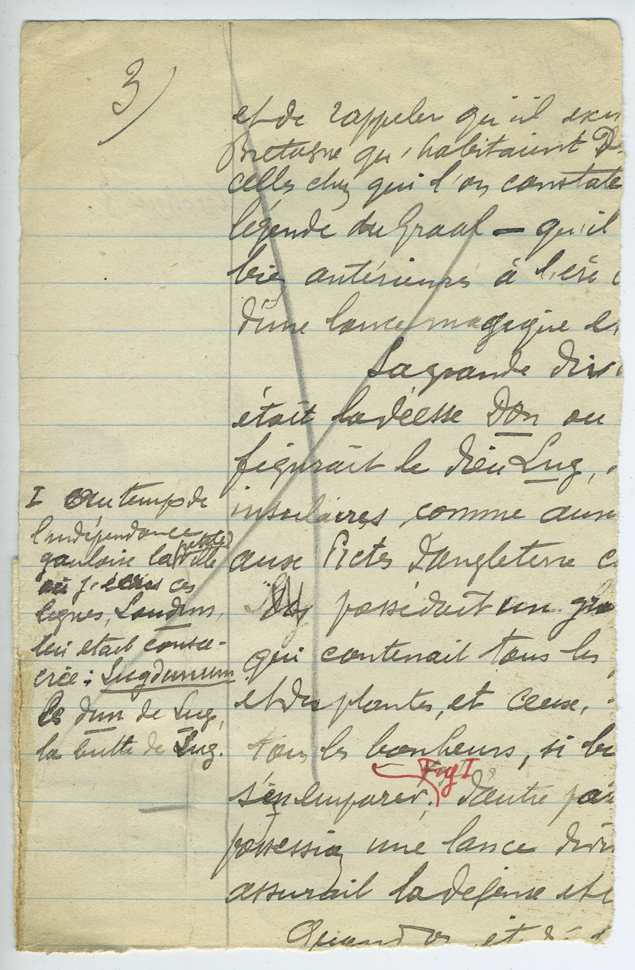 3)
et de rappeler qu'il exis
Bretagne qu'habitaient D
celles chez qui l'on constate
légende du Graal — qu'il
bien antérieures à l'ère c
d'une lance magique et
La grande divi
était la déesse Don ou
figurait le dieu Lug,
insulaires, comme aux
aux Pictes d'Angleterre c
possédait un gra
qui contenait tous les
et des plantes, et ceux,
tous les bonheurs, si bi
Fig I
s'en emparer. D'autre par
possession une lance divi
assurait la défense et
Quand on et
I au temps de
l'indépendance
gauloise la petite ville
où j'écris ces
lignes, Loudun,
lui était consa-
crée : Lugdunum
le dun de Lug,
la butte de Lug.